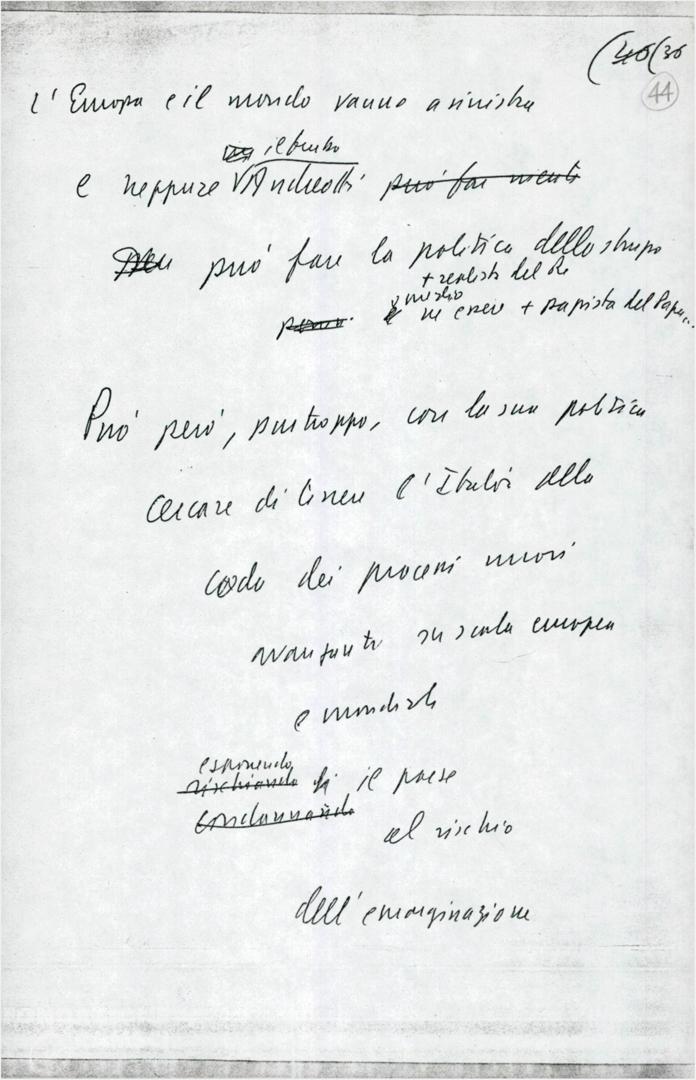 (46 (36
44
L'Europa e il mondo vanno a sinistra
il furbo
e neppure Andreotti può far niente
può fare la politica dello struzzo
+ realista del Re
meglio
né essere + papista del Papa...
Può però, purtroppo, con la sua politica
cercare di tenere l'Italia alla
coda dei processi nuovi
avanzanti su scala europea
e mondiale
esponendo
rischiando di il paese
condannando
al rischio
dell'emarginazione